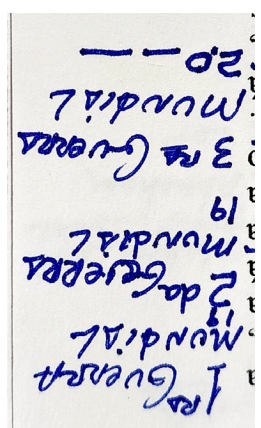 1ra Guerra
Mundial
19
2 da Guerra
Mundial
19
3 ra Guerra
Mundial
20 — — —